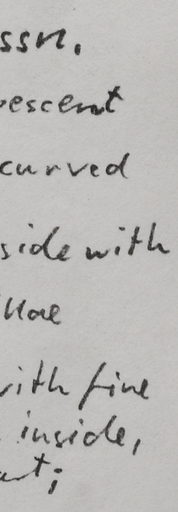 ssn.
pescent
curved
side with
illae
with fine
inside,
ut;